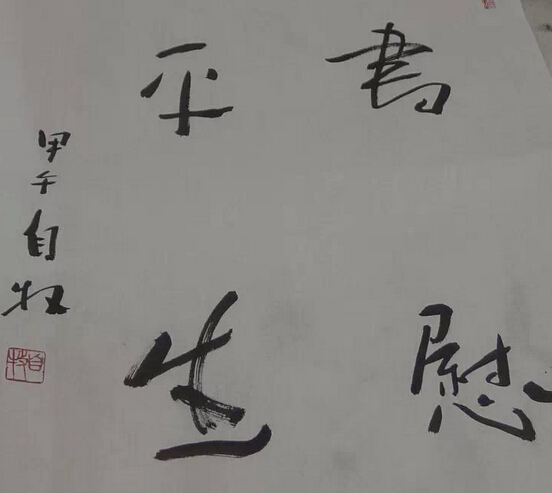 書慰
平生
甲午自牧
自牧